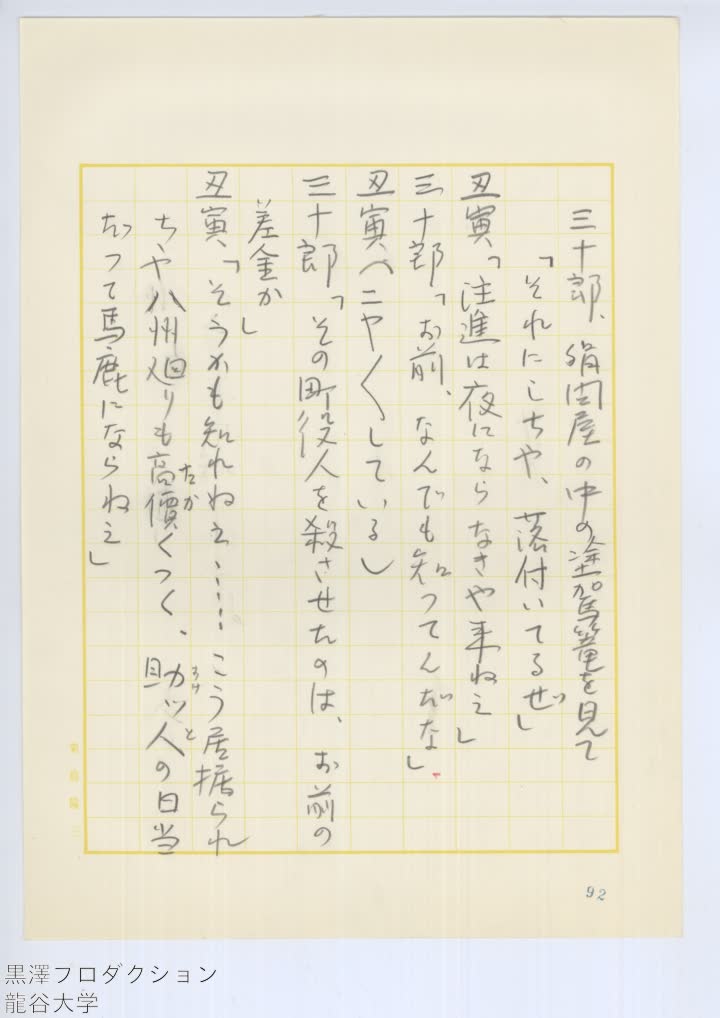 三十郎、絹問屋の中の塗駕篭を見て
「それにしちや、落付いてるぜ」
丑寅「注進は夜にならなきや来ねえ」
三十郎「お前、なんでも知つてんだな」
丑寅（ニヤ〱している）
三十郎「その町役人を殺させたのは、お前の
差金か」
丑寅「そうかも知れねえ……こう居据られ
ちや八州廻りも高價くつく、助ツ人の日当
たか
すけ
と
だつて馬鹿にならねえ」
92
黒澤プロダクション
龍谷大学